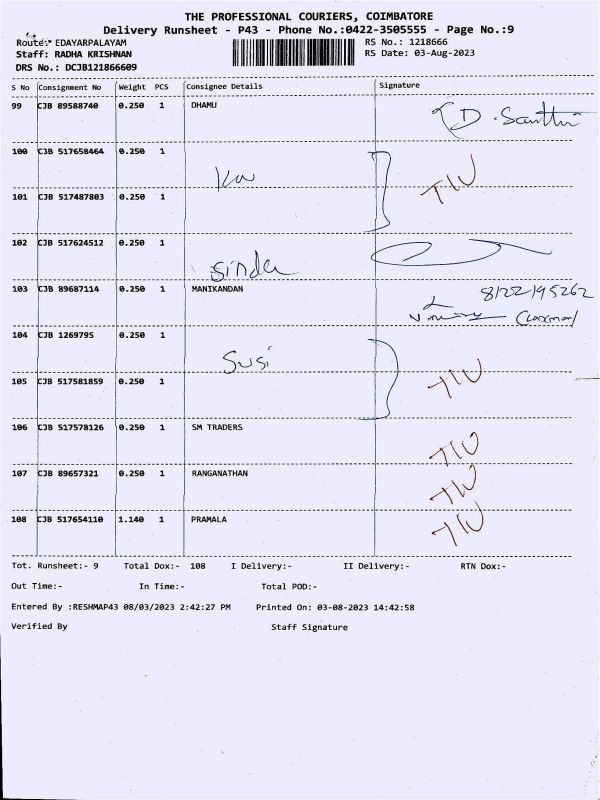 THE PROFESSIONAL COURIERS, COIMBATORE
Delivery Runsheet - P43 - Phone No.:0422-3505555 - Page No.:9
Route:- EDAYARPALAYAM
RS No.: 1218666
Staff: RADHA KRISHNAN
RS Date: 03-Aug-2023
DRS No.: DCJB121866609
S No Consignment No Weight PCS Consignee Details Signature
99 CJB 89588740 0.250 1 DHAMU
D. Santhi
100 CJB 517658464 0.250 1
TW
101 CJB 517487803 0.250 1
102 CJB 517624512 0.250 1
103 CJB 89687114 0.250 1 MANIKANDAN
8122195262
104 CJB 1269795 0.250 1
Susi
105 CJB 517581859 0.250 1
TW
106 CJB 517578126 0.250 1 SM TRADERS
TW
107 CJB 89657321 0.250 1 RANGANATHAN
TW
108 CJB 517654110 1.140 1 PRAMALA
TW
Tot. Runsheet:- 9 Total Dox:- 108 I Delivery:- II Delivery:- RTN Dox:-
Out Time:- In Time:- Total POD:-
Entered By :RESHMAP43 08/03/2023 2:42:27 PM Printed On: 03-08-2023 14:42:58
Verified By Staff Signature